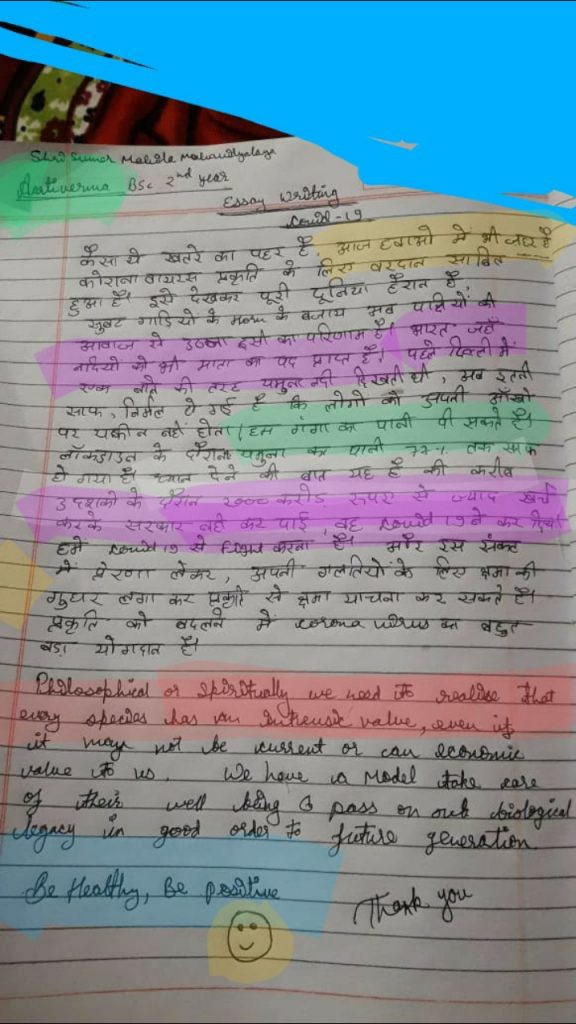 Shri Sumer Mahila Mahavidyalaya
Aativerma BSc 2nd year
Essay Writing
Covid-19
कैसा ये खतरे का पहर है, आज हवाओ में भी जहर है
कोराना वायरस प्रकृति के लिए वरदान साबित
हुआ है। इसे देखकर पूरी दूनिया हैरान है,
सुबह गाडियों के बजाय अब पक्षियों की
आवाज से उठना इसी का परिणाम है। भारत जहाँ
नदियों को भी माता का पद प्राप्त है। पहले दिल्ली में
गन्दे नाले की तरह यमुना नदी दिखती थी, अब इतनी
साफ, निर्मल हो गई है कि लोगो को अपनी आँखो
पर यकीन नहीं होता। हम गंगा का पानी पी सकते है।
लॉकडाउन के दौरान यमुना का पानी 77% तक साफ
हो गया है। ध्यान देने की बात यह है की करीब
3 दशको के दौरान 2000 करोड़ रुपए से ज्याद खर्च
करके सरकार नही कर पाई, वह covid 19 ने कर दिया
हमें covid 19 से fight करना है। और इस संकट
से प्रेरणा लेकर, अपनी गलतियों के लिए क्षमा की
गुहार लगा कर प्रकृति से क्षमा याचना कर सकते है।
प्रकृति को बदलने में corona virus का बहुत
बड़ा योगदान है।
Philosophical or spiritually we need to realise that
every species has an intrensic value, even if
it maya not be current or can economic
value to us. We have a Model take care
of their well being & pass on out biological
legacy in good order to future generation
Be Healthy, Be positive
Thank you